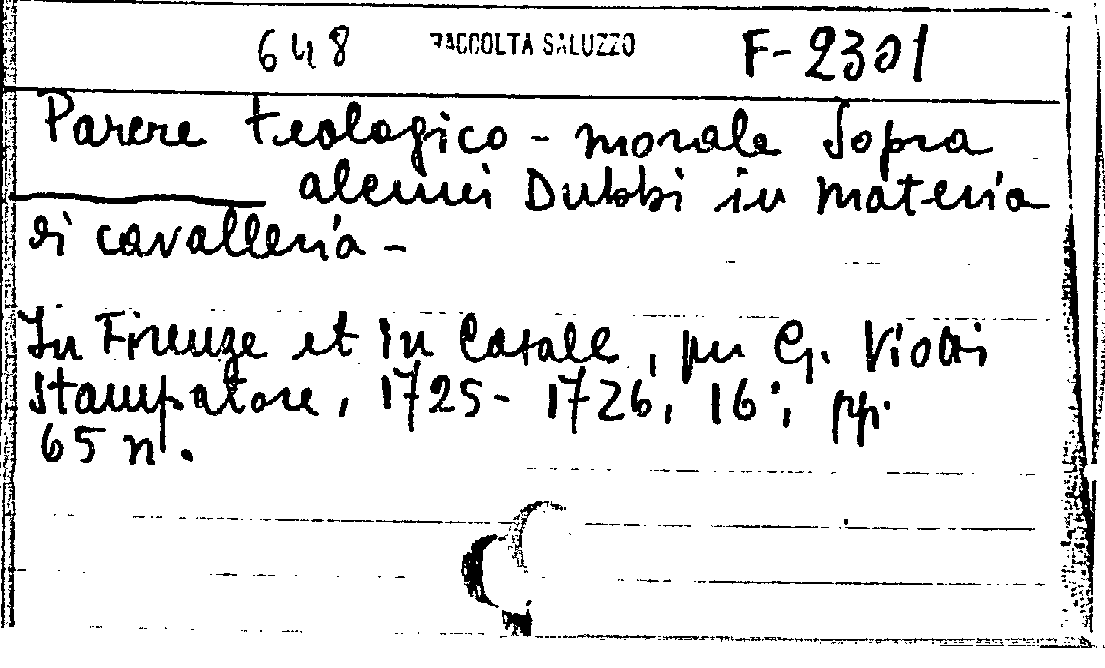 648 RACCOLTA SALUZZO F-2301
Parere teologico-morale Sopra
alcuni Dubbi in materia
di cavalleria-
In Firenze et in Casale, per G. Viotti
stampatore, 1725-1726, 16°, pp.
65 n.